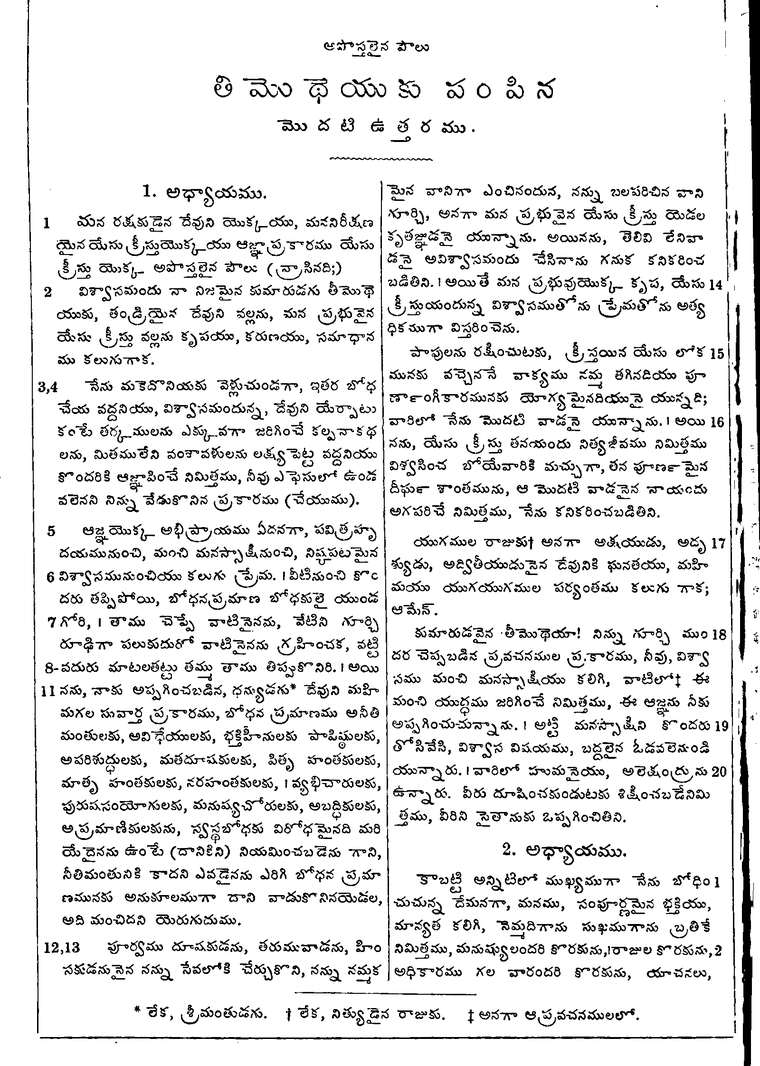 ఆపొస్తలైన పౌలు
తిమొథెయుకు పంపిన
మొదటి ఉత్తరము.
1. అధ్యాయము.
1 మన రక్షకుడైన దేవుని యొక్కయు, మననిరీక్షణ
యైన యేసు క్రీస్తుయొక్కయు ఆజ్ఞా ప్రకారము యేసు
క్రీస్తు యొక్క అపొస్తలైన పౌలు (వ్రాసినది;)
2 విశ్వాసమందు నా నిజమైన కుమారుడగు తీమొథె
యుకు, తండ్రియైన దేవుని వల్లను, మన ప్రభువైన
యేసు క్రీస్తు వల్లను కృపయు, కరుణయు, సమాధాన
ము కలుగుగాక.
3,4 నేను మకెదొనియకు వెళ్లుచుండగా, ఇతర బోధ
చేయ వద్దనియు, విశ్వాసమందున్న, దేవుని యేర్పాటు
కంటే తర్కములను ఎక్కువగా జరిగించే కల్పనాకథ
లను, మితములేని వంశావళులను లక్ష్యపెట్ట వద్దనియు
కొందరికి ఆజ్ఞాపించే నిమిత్తము, నీవు ఎఫెసులో ఉండ
వలెనని నిన్ను వేడుకొనిన ప్రకారము (చేయుము).
5 ఆజ్ఞయొక్క అభిప్రాయము ఏదనగా, పవిత్రహృ
దయమునుంచి, మంచి మనస్సాక్షినుంచి, నిష్కపటమైన
6 విశ్వాసమునుంచియు కలుగు ప్రేమ. । వీటినుంచి కొం
దరు తప్పిపోయి, బోధనప్రమాణ బోధకులై యుండ
7 గోరి, । తాము చెప్పే వాటినైనను, వేటిని గూర్చి
రూఢిగా పలుకుదురో వాటినైనను గ్రహించక, వట్టి
8- వదురు మాటలతట్టు తమ్ము తాము తిప్పుకొనిరి. । అయి
11 నను, నాకు అప్పగించబడిన, ధన్యుడగు* దేవుని మహి
మగల సువార్త ప్రకారము, బోధన ప్రమాణము అనీతి
మంతులకు, అవిధేయులకు, భక్తిహీనులకు పాపిష్ఠులకు,
అపరిశుద్ధులకు, మతదూషకులకు, పితృ హంతకులకు,
మాతృ హంతకులకు, నరహంతకులకు, । వ్యభిచారులకు,
పురుషసంయోగులకు, మనుష్యచోరులకు, అబద్ధికులకు,
అప్రమాణికులకును, స్వస్థబోధకు విరోధమైనది మరి
యేదైనను ఉంటే (దానికిని) నియమించబడెను గాని,
నీతిమంతునికి కాదని ఎవడైనను ఎరిగి బోధన ప్రమా
ణమునకు అనుకూలముగా దాని వాడుకొనినయెడల,
అది మంచిదని యెరుగుదుము.
12,13 పూర్వము దూషకుడను, తరుమువాడను, హిం
సకుడనునైన నన్ను సేవలోకి చేర్చుకొని, నన్ను నమ్మక
మైన వానిగా ఎంచినందున, నన్ను బలపరిచిన వాని
గూర్చి, అనగా మన ప్రభువైన యేసు క్రీస్తు యెడల
కృతజ్ఞుడనై యున్నాను. అయినను, తెలివి లేనివా
డనై అవిశ్వాసమందు చేసినాను గనుక కనికరించ
బడితిని. । అయితే మన ప్రభువుయొక్క కృప, యేసు 14
క్రీస్తుయందున్న విశ్వాసముతోను ప్రేమతోను అత్య
ధికముగా విస్తరించెను.
పాపులను రక్షించుటకు, క్రీస్తయిన యేసు లోక 15
మునకు వచ్చెననే వాక్యము నమ్మ తగినదియు పూ
ర్ణాంగీకారమునకు యోగ్యమైనదియునై యున్నది;
వారిలో నేను మొదటి వాడనై యున్నాను. । అయి 16
నను, యేసు క్రీస్తు తనయందు నిత్యజీవము నిమిత్తము
విశ్వసించ బోయేవారికి మచ్చుగా, తన పూర్ణమైన
దీర్ఘ శాంతమును, ఆ మొదటి వాడనైన నాయందు
అగపరిచే నిమిత్తము, నేను కనికరించబడితిని.
యుగముల రాజుకు† అనగా అక్షయుడు, అదృ 17
శ్యుడు, అద్వితీయుడునైన దేవునికి ఘనతయు, మహి
మయు యుగయుగముల పర్యంతము కలుగు గాక;
ఆమేన్.
కుమారుడవైన తీమొథెయా! నిన్ను గూర్చి ముం 18
దర చెప్పబడిన ప్రవచనముల ప్రకారము, నీవు, విశ్వా
సము మంచి మనస్సాక్షియు కలిగి, వాటిలో‡ ఈ
మంచి యుద్ధము జరిగించే నిమిత్తము, ఈ ఆజ్ఞను నీకు
అప్పగించుచున్నాను. । అట్టి మనస్సాక్షిని కొందరు 19
తోసివేసి, విశ్వాస విషయము, బద్దలైన ఓడవలెనుండి
యున్నారు. । వారిలో హుమనైయు, అలెక్సంద్రును 20
ఉన్నారు. వీరు దూషించకుండుటకు శిక్షించబడేనిమి
త్తము, వీరిని సైతానుకు ఒప్పగించితిని.
2. అధ్యాయము.
కాబట్టి అన్నిటిలో ముఖ్యముగా నేను బోధిం 1
చుచున్న దేమనగా, మనము, సంపూర్ణమైన భక్తియు,
మాన్యత కలిగి, నెమ్మదిగాను సుఖముగాను బ్రతికే
నిమిత్తము, మనుష్యులందరి కొరకును, ।రాజుల కొరకును, 2
అధికారము గల వారందరి కొరకును, యాచనలు,
* లేక, శ్రీమంతుడగు. † లేక, నిత్యుడైన రాజుకు. ‡ అనగా ఆ ప్రవచనములలో.